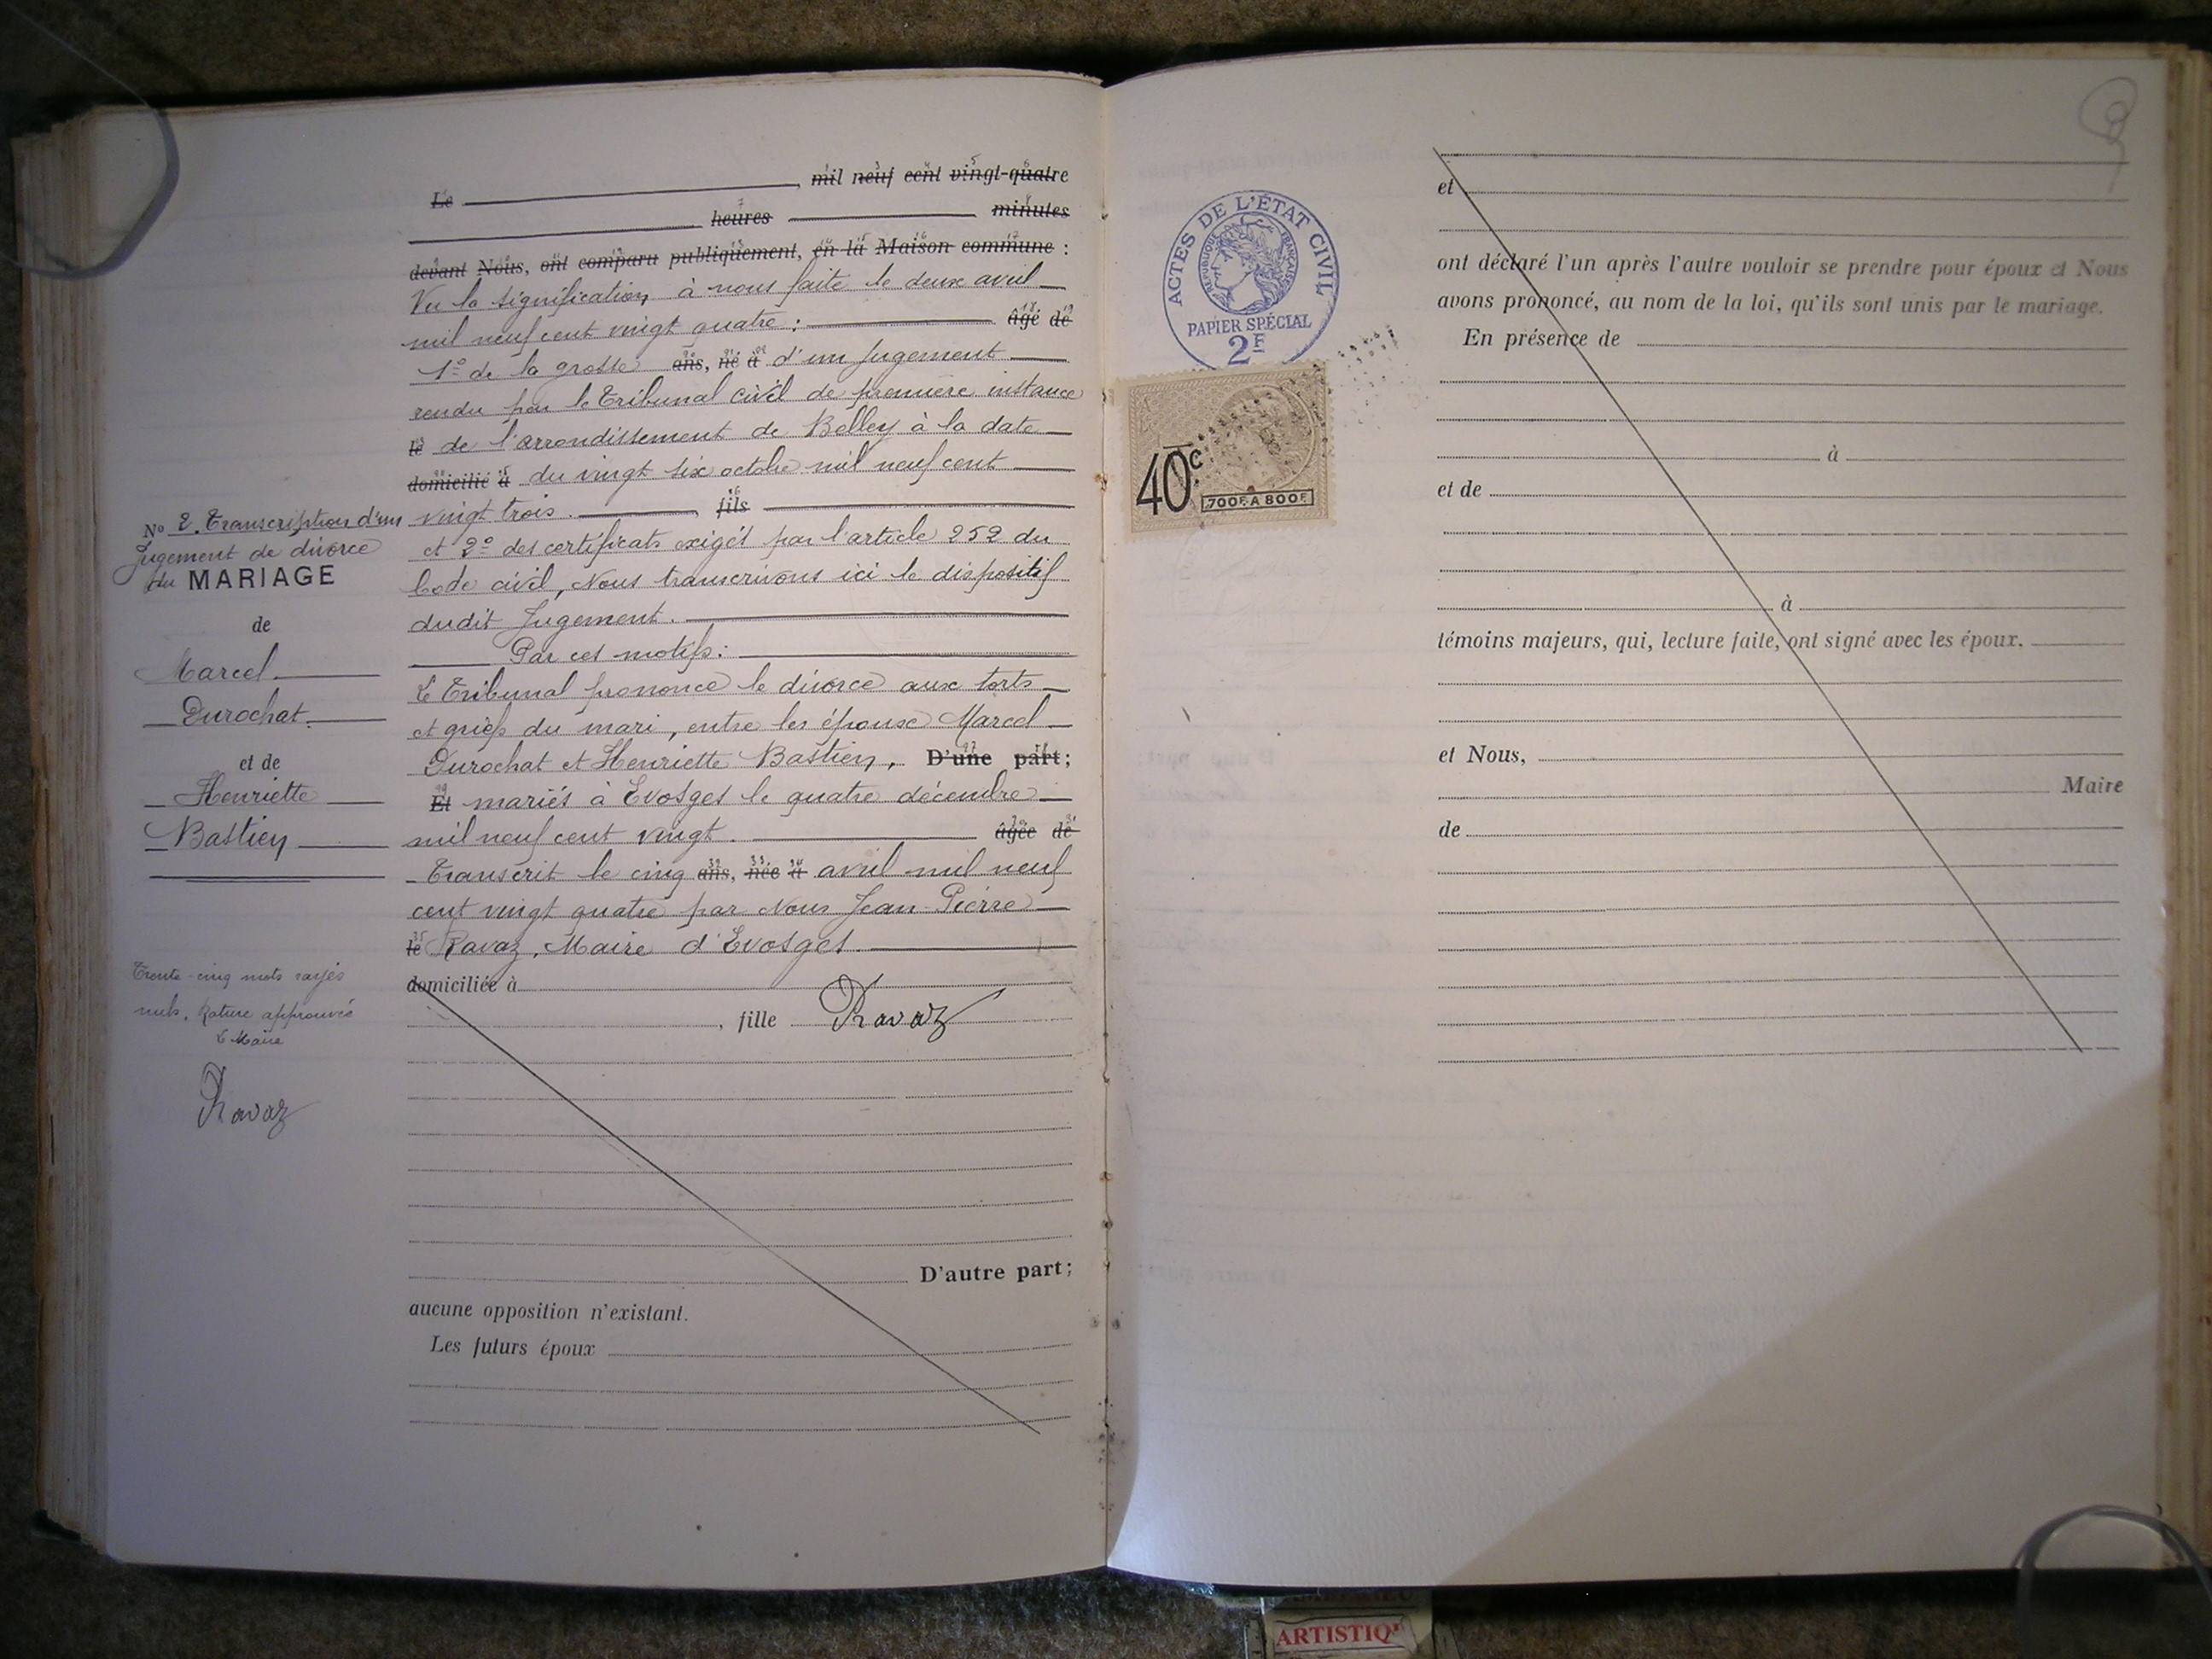 Le , mil neuf cent vingt-quatre
heures minutes
devant Nous, ont comparu publiquement, en la Maison commune :
Vu la signification à nous faite le deux avril
mil neuf cent vingt quatre : âgé de
1º de la grosse ans, né à d'un Jugement
rendu par le Tribunal civil de première instance
le de l'arrondissement de Belley à la date
domicilié à du vingt six octobre mil neuf cent
vingt trois. , fils
et 2º des certificats exigés par l'article 252 du
Code civil, Nous transcrivons ici le dispositif
dudit Jugement.
Par ces motifs :
Le Tribunal prononce le divorce aux torts
et griefs du mari, entre les époux Marcel
Durochat et Henriette Bastien, D'une part ;
Et mariés à Evosges le quatre décembre
mil neuf cent vingt. âgée de
Transcrit le cinq ans, née à avril mil neuf
cent vingt quatre par Nous Jean-Pierre
le Ravaz, Maire d'Evosges.
domiciliée à
, fille Ravaz
D'autre part ;
aucune opposition n'existant.
Les futurs époux
Nº 2. Transcription d'un
Jugement de divorce
du MARIAGE
de
Marcel
Durochat.
et de
Henriette
Bastien
Trente-cinq mots rayés
nuls, Rature approuvée
Le Maire
Ravaz
ACTES DE L'ÉTAT CIVIL
RÉPUBLIQUE FRANÇAISE
PAPIER SPÉCIAL
2F
40c
700F. A 800F.
et
ont déclaré l'un après l'autre vouloir se prendre pour époux et Nous
avons prononcé, au nom de la loi, qu'ils sont unis par le mariage.
En présence de
à
et de
à
témoins majeurs, qui, lecture faite, ont signé avec les époux.
et Nous,
Maire
de
ARTISTIQ